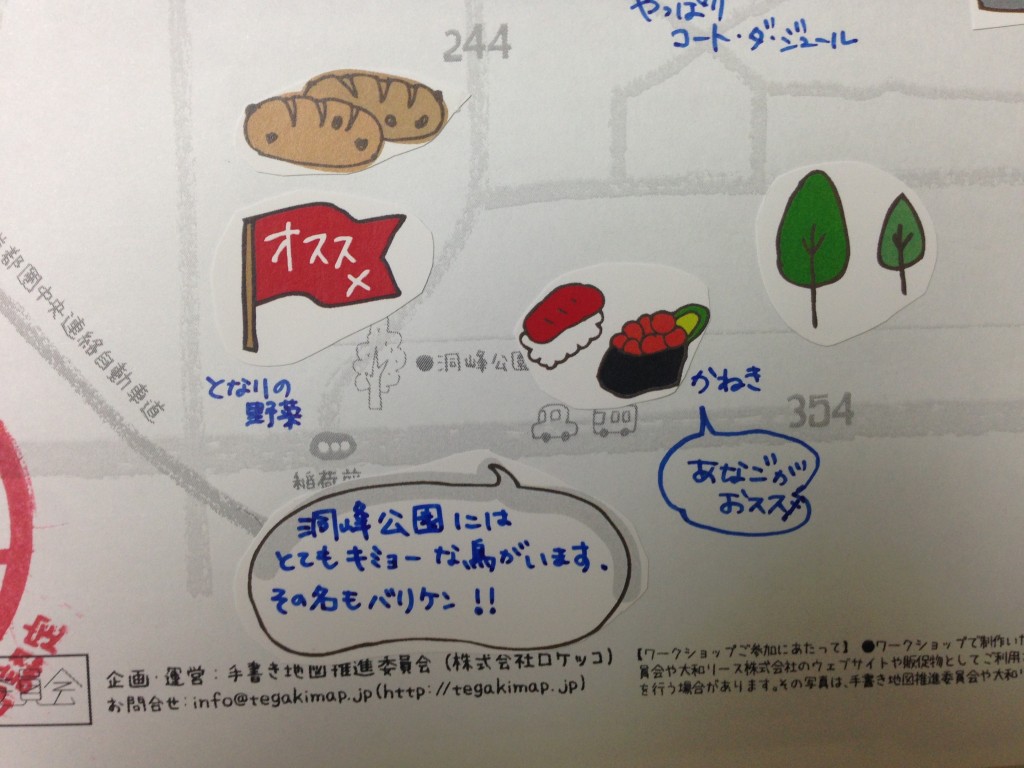 やっぱり
コート・ダ・ジュール
244
オスス
メ
都圏中央連絡自動車道
洞峰公園
となりの
野菜
かねき
354
あなごが
おススメ
稲荷前
洞峰公園には
とてもキミョーな鳥がいます.
その名もバリケン!!
企画・運営:手書き地図推進委員会(株式会社ロケッコ)
お問合せ:info@tegakimap.jp(http://tegakimap.jp)
【ワークショップご参加にあたって】 ●ワークショップで制作いた
員会や大和リース株式会社のウェブサイトや販促物としてご利用
を行う場合があります。その写真は、手書き地図推進委員会や大和